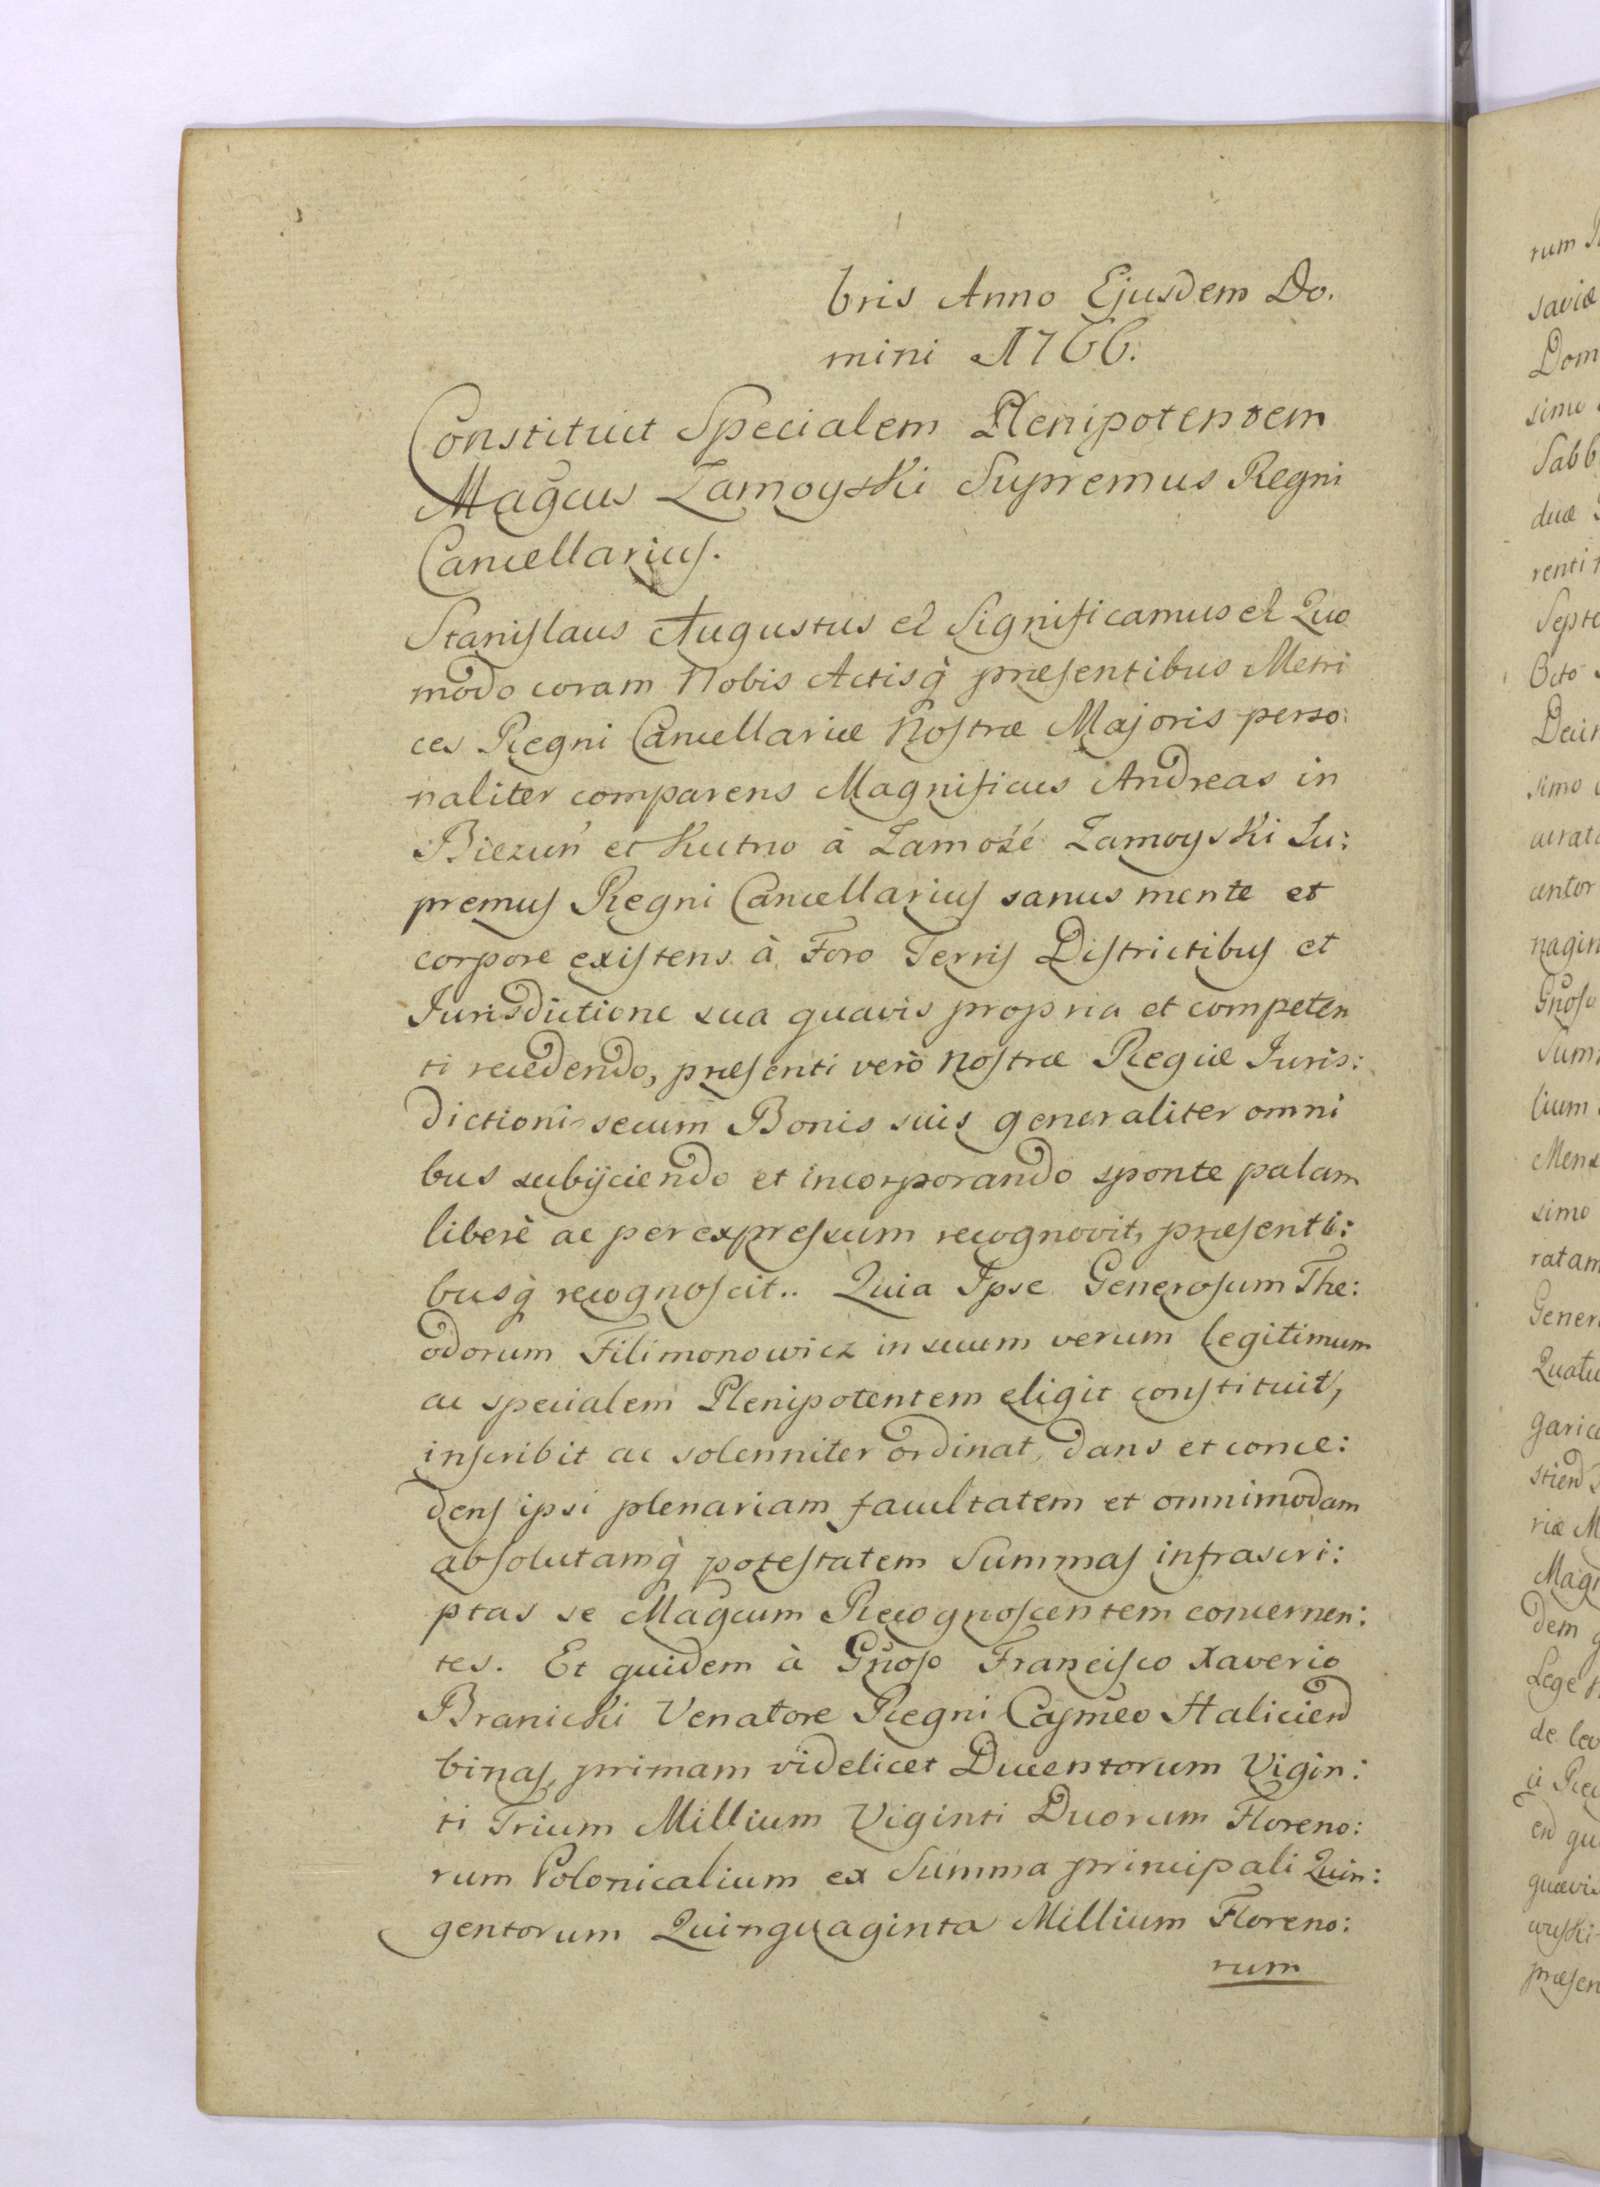 bris Anno Ejusdem Do.
mini 1766.
Constituit Specialem Plenipotentem
Magcus Zamoyski Supremus Regni
Cancellarius.
Stanislaus Augustus et Significamus et Quo
modo coram Nobis Actisq̀ præsentibus Metri
ces Regni Cancellariæ Nostræ Majoris perso:
naliter comparens Magnificus Andreas in
Biezuń et Kutno à Zamośé Zamoyski Su:
premus Regni Cancellarius sanus mente et
corpore existens à Foro Terris Districtibus et
Jurisdictione sua quavis propria et competen
ti recedendo, præsenti verò Nostræ Regiæ Juris:
dictioni secum Bonis suis generaliter omni
bus subijciendo et incorporando sponte palam
liberè ac per expressum recognovit, præsenti:
busq̀ recognoscit.. Quia Ipse Generosum The:
odorum Filimonowicz in suum verum legitimum
ac specialem Plenipotentem eligit constituit,
inscribit ac solenniter ordinat, dans et conce:
dens ipsi plenariam facultatem et omnimodam
absolutamq̀ potestatem Summas infrascri:
ptas se Magcum Recognoscentem concernen:
tes. Et quidem à Gñoso Francisco Xaverio
Branicki Venatore Regni Casmeo Haliciend
binas, primam videlicet Ducentorum Vigin:
ti Trium Millium Viginti Duorum Floreno:
rum Polonicalium ex Summa principali Quin:
gentorum Quinquaginta Millium Floreno:
rum